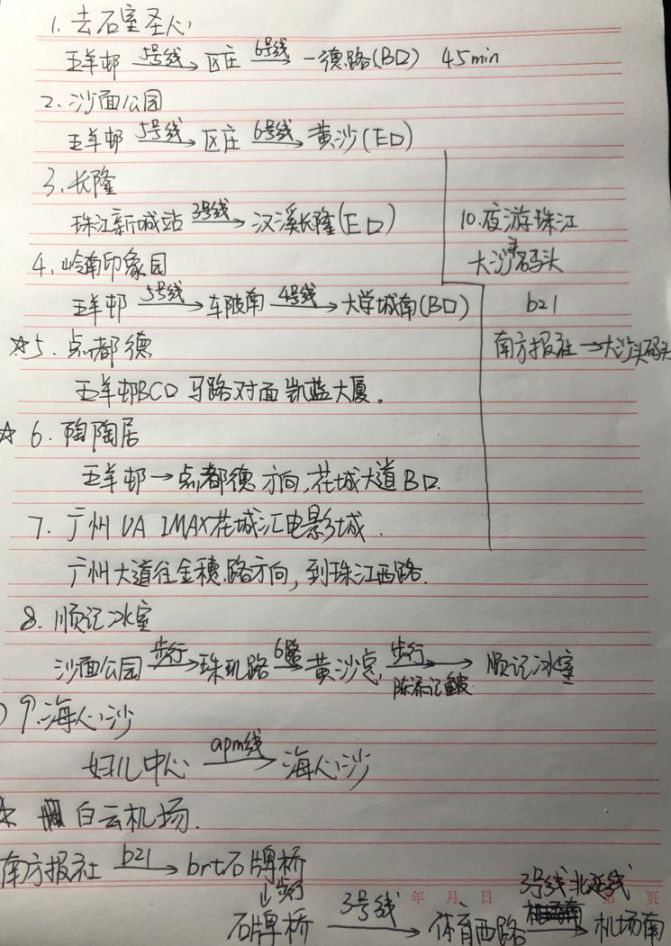 1. 去石室圣心
五羊邨 5号线→ 区庄 6号线→ 一德路(B口) 45min
2. 沙面公园
五羊邨 5号线→ 区庄 6号线→ 黄沙(E口)
3. 长隆
珠江新城站 3号线→ 汉溪长隆(E口)
4. 岭南印象园
五羊邨 5号线→ 车陂南 4号线→ 大学城南(B口)
☆5. 点都德
五羊邨BC口 马路对面凯蓝大厦。
☆6. 陶陶居
五羊邨→点都德方向,花城大道B口.
7. 广州UA IMAX花城汇电影城.
广州大道往金穗路方向,到珠江西路.
8. 顺记冰室
沙面公园 步行→ 珠玑路 6路→ 黄沙总, 步行→ 顺记冰室
陈添记鱼皮
9. 海心沙
妇儿中心 apm线→ 海心沙
10. 夜游珠江
大沙头码头
b21
南方报社→大沙头码头
☆ 白云机场.
南方报社 b21→ brt石牌桥
↓步行
石牌桥 3号线→ 体育西路 3号线北延线→ 机场南
年 月 日 第 页